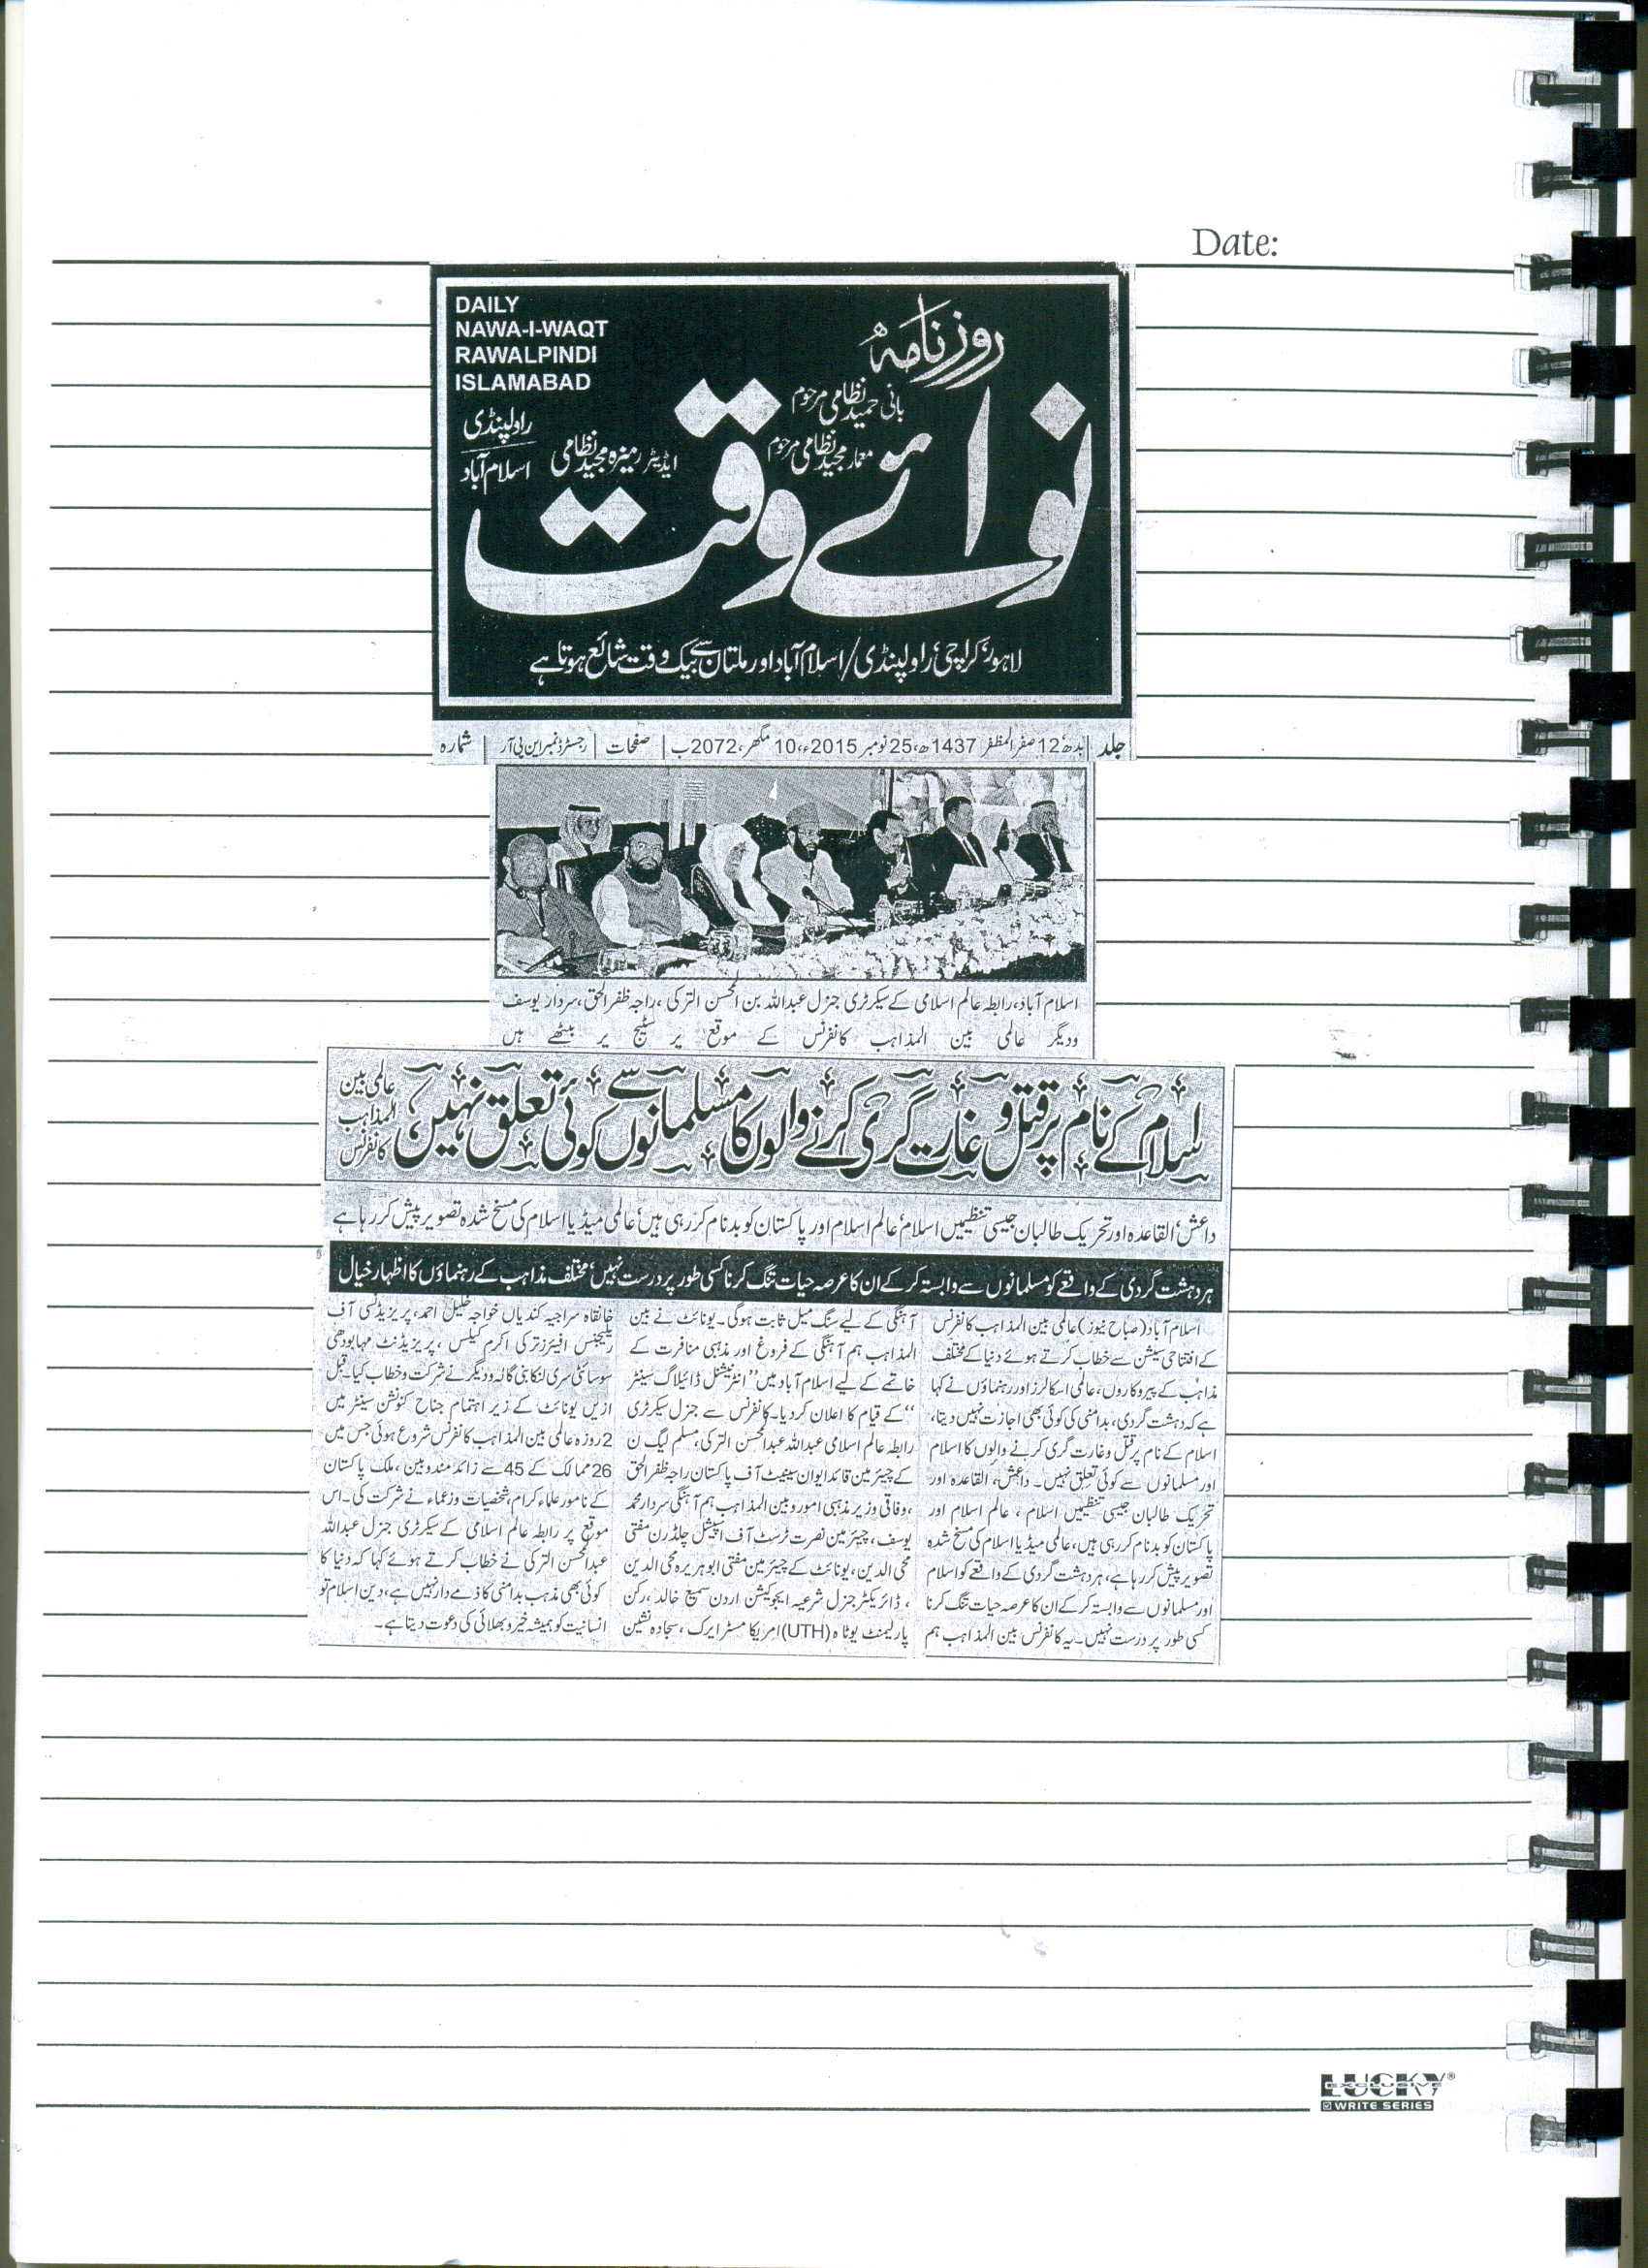 Date:
DAILY
NAWA-I-WAQT
RAWALPINDI
ISLAMABAD
راولپنڈی
اسلام آباد
روزنامہ
بانی حمید نظامی مرحوم
معمار مجید نظامی مرحوم
ایڈیٹر رمیزہ مجید نظامی
نوائے وقت
لاہور، کراچی، راولپنڈی/اسلام آباد اور ملتان سے بیک وقت شائع ہوتا ہے
جلد | بدھ 12 صفر المظفر 1437ھ، 25 نومبر 2015ء، 10 مگھر، 2072ب | صفحات | رجسٹرڈ نمبر این پی آر | شمارہ
اسلام آباد، رابطہ عالم اسلامی کے سیکرٹری جنرل عبداللہ بن المحسن الترکی، راجہ ظفر الحق، سردار یوسف
ودیگر عالمی بین المذاہب کانفرنس کے موقع پر سٹیج پر بیٹھے ہیں
اسلام کے نام پر قتل و غارت گری کرنے والوں کا مسلمانوں سے کوئی تعلق نہیں،
عالمی بین
المذاہب
کانفرنس
داعش، القاعدہ اور تحریک طالبان جیسی تنظیمیں اسلام، عالم اسلام اور پاکستان کو بدنام کر رہی ہیں، عالمی میڈیا اسلام کی مسخ شدہ تصویر پیش کر رہا ہے
ہر دہشت گردی کے واقعے کو مسلمانوں سے وابستہ کر کے ان کا عرصہ حیات تنگ کرنا کسی طور پر درست نہیں، مختلف مذاہب کے رہنماؤں کا اظہار خیال
اسلام آباد (صباح نیوز) عالمی بین المذاہب کانفرنس
کے افتتاحی سیشن سے خطاب کرتے ہوئے دنیا کے مختلف
مذاہب کے پیروکاروں، عالمی اسکالرز اور رہنماؤں نے کہا
ہے کہ دہشت گردی، بدامنی کی کوئی بھی اجازت نہیں دیتا،
اسلام کے نام پر قتل و غارت گری کرنے والوں کا اسلام
اور مسلمانوں سے کوئی تعلق نہیں۔ داعش، القاعدہ اور
تحریک طالبان جیسی تنظیمیں اسلام، عالم اسلام اور
پاکستان کو بدنام کر رہی ہیں، عالمی میڈیا اسلام کی مسخ شدہ
تصویر پیش کر رہا ہے، ہر دہشت گردی کے واقعے کو اسلام
اور مسلمانوں سے وابستہ کر کے ان کا عرصہ حیات تنگ کرنا
کسی طور پر درست نہیں۔ یہ کانفرنس بین المذاہب ہم
آہنگی کے لیے سنگ میل ثابت ہوگی۔ یونائٹ نے بین
المذاہب ہم آہنگی کے فروغ اور مذہبی منافرت کے
خاتمے کے لیے اسلام آباد میں "انٹرنیشنل ڈائیلاگ سینٹر
" کے قیام کا اعلان کر دیا۔ کانفرنس سے جنرل سیکرٹری
رابطہ عالم اسلامی عبداللہ عبدالمحسن الترکی، مسلم لیگ ن
کے چیئرمین قائد ایوان سینیٹ آف پاکستان راجہ ظفر الحق
، وفاقی وزیر مذہبی امور و بین المذاہب ہم آہنگی سردار محمد
یوسف، چیئرمین نصرت ٹرسٹ آف اسپیشل چلڈرن مفتی
محی الدین، یونائٹ کے چیئرمین مفتی ابوہریرہ محی الدین
، ڈائریکٹر جنرل شرعیہ ایجوکیشن اردن سمیع خالد، رکن
پارلیمنٹ یوٹاہ (UTH) امریکا مسٹر ایرک، سجادہ نشین
خانقاہ سراجیہ کندیاں خواجہ خلیل احمد، پریزیڈنسی آف
ریلیجنس افیئرز ترکی اکرم کیلس، پریزیڈنٹ مہابودھی
سوسائٹی سری لنکا بنی گالہ ودیگر نے شرکت وخطاب کیا۔ قبل
ازیں یونائٹ کے زیر اہتمام جناح کنونشن سینٹر میں
2 روزہ عالمی بین المذاہب کانفرنس شروع ہوئی جس میں
26 ممالک کے 45 سے زائد مندوبین، ملک پاکستان
کے نامور علماء کرام، شخصیات وزعماء نے شرکت کی۔ اس
موقع پر رابطہ عالم اسلامی کے سیکرٹری جنرل عبداللہ
عبدالمحسن الترکی نے خطاب کرتے ہوئے کہا کہ دنیا کا
کوئی بھی مذہب بدامنی کا ذمے دار نہیں ہے، دین اسلام تو
انسانیت کو ہمیشہ خیر و بھلائی کی دعوت دیتا ہے۔
LUCKY®
EXCLUSIVE
WRITE SERIES